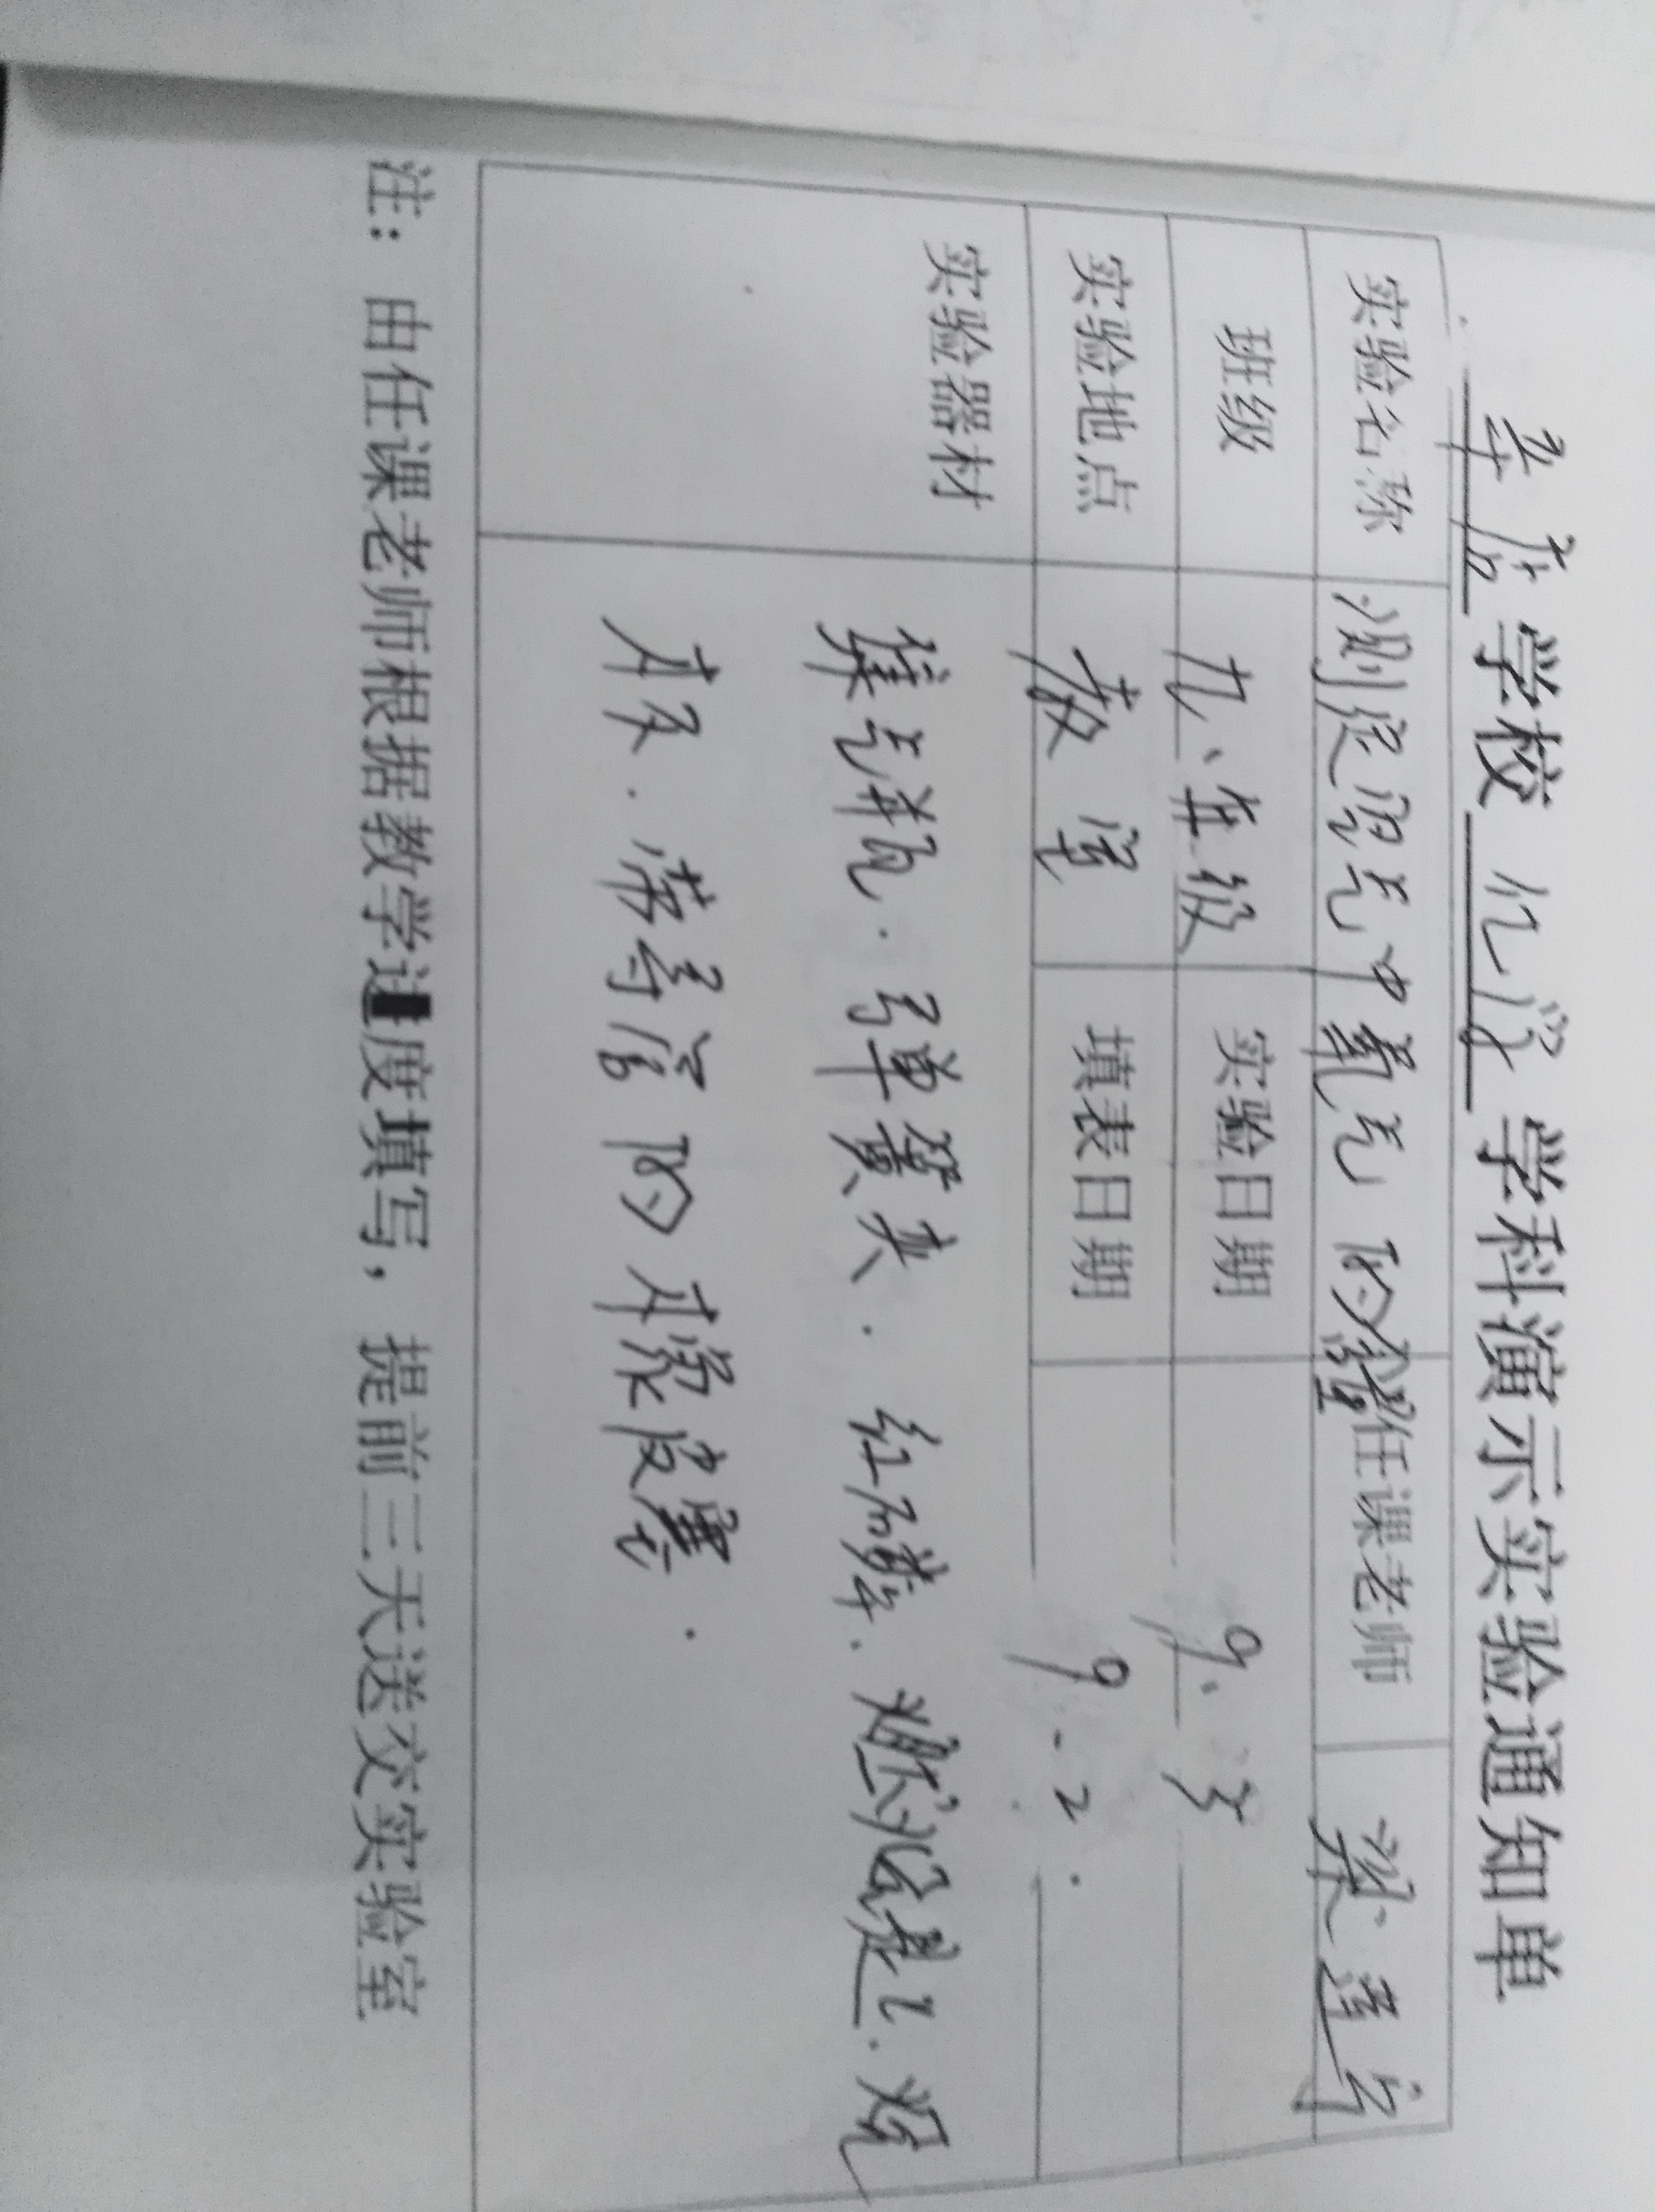 学校 化学 学科演示实验通知单
实验名称 测定空气中氧气的含量 任课老师
班级 九年级 实验日期 9.3
实验地点 教室 填表日期 9.2.
实验器材 集气瓶.弹簧夹.红磷.燃烧匙.烧
杯.水.带导管的橡皮塞.
注:由任课老师根据教学进度填写,提前三天送交实验室